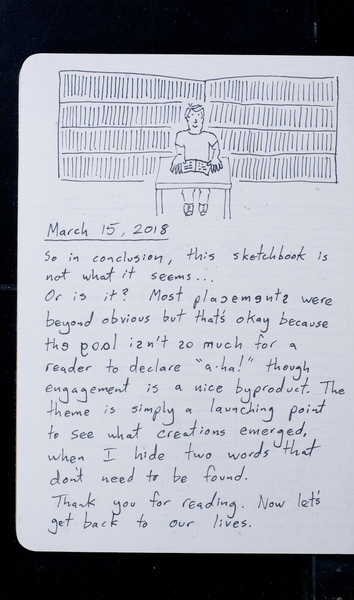 March 15, 2018
So in conclusion, this sketchbook is
not what it seems...
Or is it? Most placements were
beyond obvious but that's okay because
the goal isn't so much for a
reader to declare "a-ha!" though
engagement is a nice byproduct. The
theme is simply a launching point
to see what creations emerged,
when I hide two words that
don't need to be found.
Thank you for reading. Now let's
get back to our lives.